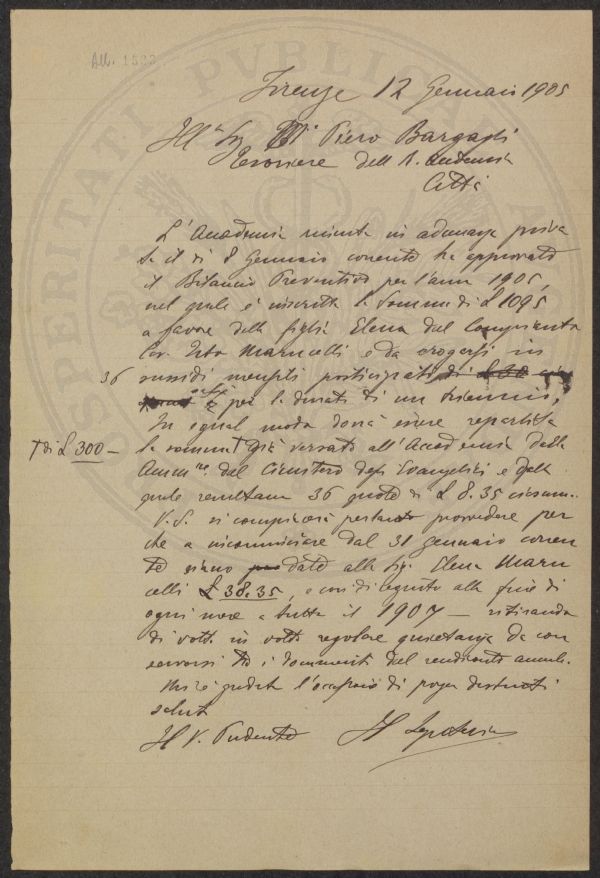 All. 1583
PROSPERITATI PVBLICAE AV
Firenze 12 Gennaio 1905
Ill° Sig. Piero Bargagli
Tesoriere dell R. Accademia
Città
L'Accademia riunita in adunanza priva
ta il dì 8 Gennaio corrente ha approvato
il Bilancio Preventivo per l'anno 1905,
nel quale è inscritta la somma di £ 1095
a favore della figlia Elena del Compianto
Cav. Marucelli e da erogarsi in
36 sussidi mensili posticipati di £ 30
per la durata di un triennio.
In egual modo dovrà essere repartita
la somma T già versata all'Accademia dalla
T di £ 300 –
Amm.ne del Cimitero degli Evangelici e della
quale resultano 36 quote di £ 8.35 ciascuna.
V. S. si compiacerà pertanto provvedere per
che a incominciare dal 31 gennaio corren
te siano date alla Sig. Elena Maru
celli £ 38.35, e così di seguito alla fine di
ogni mese a tutto il 1907 – ritirando
di volta in volta regolare quietanza da con
servarsi tra i documenti del rendiconto annuale.
Mi è grata l'occasione di porger distinti
saluti
Il V. Presidente Il Segretario